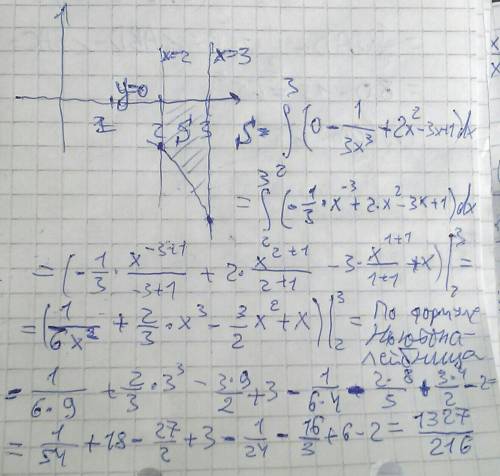 x=2 x=3
y=0
1 2 S 3
S = ∫₂³ (0 - 1/(3x³) + 2x² - 3x + 1) dx
= ∫₂³ (-1/3 · x⁻³ + 2·x² - 3x + 1) dx
= (-1/3 · x⁻³⁺¹/(-3+1) + 2· x²⁺¹/(2+1) - 3· x¹⁺¹/(1+1) + x) |₂³ =
= (1/(6x²) + 2/3 · x³ - 3/2 x² + x) |₂³ = По формуле Ньютона-лейбница
= 1/(6·9) + 2/3 · 3³ - 3·9/2 + 3 - 1/(6·4) - 2·8/3 + 3·4/2 - 2 =
= 1/54 + 18 - 27/2 + 3 - 1/24 - 16/3 + 6 - 2 = 1327/216